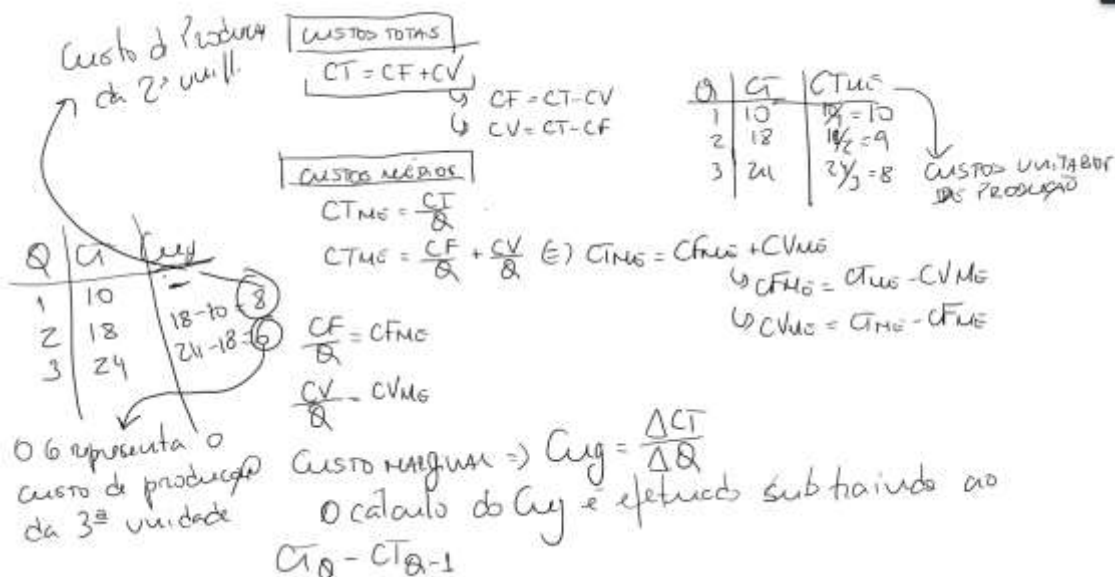 Custo d Produção
da 2ª unid.
CUSTOS TOTAIS
CT = CF + CV
↳ CF = CT - CV
↳ CV = CT - CF
Q | CT | CTMe
1 | 10 | 10/1 = 10
2 | 18 | 18/2 = 9
3 | 24 | 24/3 = 8
CUSTOS UNITÁRIOS
DE PRODUÇÃO
CUSTOS MÉDIOS
CTMe = CT/Q
CTMe = CF/Q + CV/Q (=) CTMe = CFMe + CVMe
↳ CFMe = CTMe - CVMe
↳ CVMe = CTMe - CFMe
CF/Q = CFMe
CV/Q = CVMe
Q | CT | Cmg
1 | 10
2 | 18 | 18-10 = 8
3 | 24 | 24-18 = 6
O 6 representa o
custo de produção
da 3ª unidade
CUSTO MARGINAL => Cmg = ΔCT/ΔQ
O cálculo do Cmg é efetuado subtraindo ao
CTQ - CTQ-1